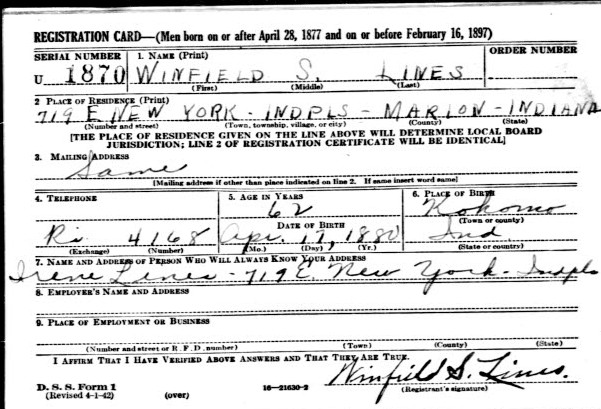 REGISTRATION CARD—(Men born on or after April 28, 1877 and on or before February 16, 1897)
SERIAL NUMBER 1. NAME (Print) ORDER NUMBER
U 1870 WINFIELD S. LINES
(First) (Middle) (Last)
2 PLACE OF RESIDENCE (Print)
719 E NEW YORK - INDPLS - MARION - INDIANA
(Number and street) (Town, township, village, or city) (County) (State)
[THE PLACE OF RESIDENCE GIVEN ON THE LINE ABOVE WILL DETERMINE LOCAL BOARD
JURISDICTION; LINE 2 OF REGISTRATION CERTIFICATE WILL BE IDENTICAL]
3. MAILING ADDRESS
Same
[Mailing address if other than place indicated on line 2. If same insert word same]
4. TELEPHONE 5. AGE IN YEARS 6. PLACE OF BIRTH
62 Kokomo
DATE OF BIRTH (Town or county)
Ri. 4168 Apr. 17, 1880 Ind
(Exchange) (Number) (Mo.) (Day) (Yr.) (State or country)
7. NAME AND ADDRESS OF PERSON WHO WILL ALWAYS KNOW YOUR ADDRESS
Irene Lines - 719 E. New York - Indpls
8. EMPLOYER'S NAME AND ADDRESS
9. PLACE OF EMPLOYMENT OR BUSINESS
(Number and street or R. F. D. number) (Town) (County) (State)
I AFFIRM THAT I HAVE VERIFIED ABOVE ANSWERS AND THAT THEY ARE TRUE.
Winfield S. Lines.
D. S. S. Form 1 16—21630-2 (Registrant's signature)
(Revised 4-1-42) (over)